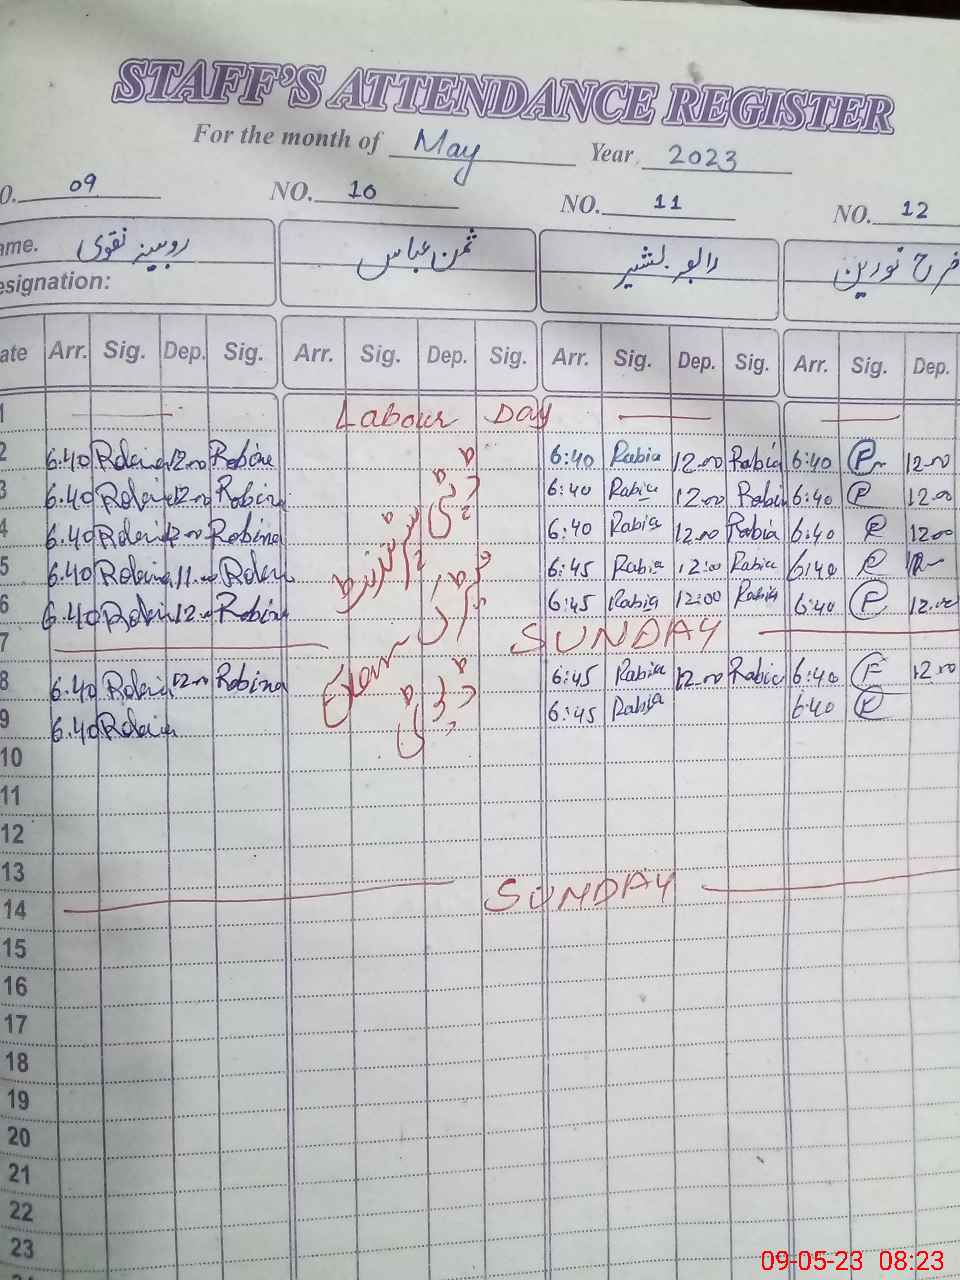 STAFF'S ATTENDANCE REGISTER
For the month of May Year 2023
O. 09 NO. 10 NO. 11 NO. 12
ame. روبینہ نقوی ثمن عباس رابعہ بشیر فرح نورین
esignation:
ate Arr. Sig. Dep. Sig. Arr. Sig. Dep. Sig. Arr. Sig. Dep. Sig. Arr. Sig. Dep.
1 Labour Day
2 6.40 12.00 Robina 6:40 Rabia 12.00 Rabia 6:40 12.00
3 6.40 12.00 Robina 6:40 Rabia 12.00 Rabia 6:40 12.00
4 6.40 12.00 Robina 6:40 Rabia 12.00 Rabia 6:40 12.00
5 6.40 6:45 Rabia 12:00 Rabia 6:40
6 6.40 12.00 Robina 6:45 Rabia 12:00 Rabia 6:40 12.00
7 SUNDAY
8 6.40 12.00 Robina 6:45 Rabia 12.00 Rabia 6:40 12.00
9 6.40 6:45 Rabia 6:40
10
11
12
13
14 SUNDAY
15
16
17
18
19
20
21
22
23
09-05-23 08:23